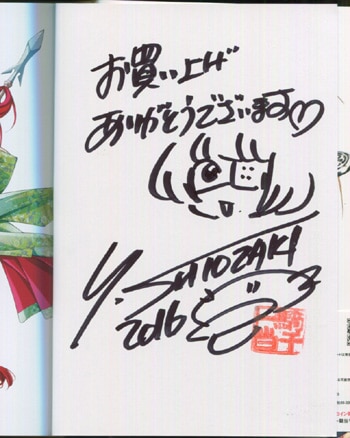 お買い上げ
ありがとうございます♡
Y. SHIOZAKI
2016